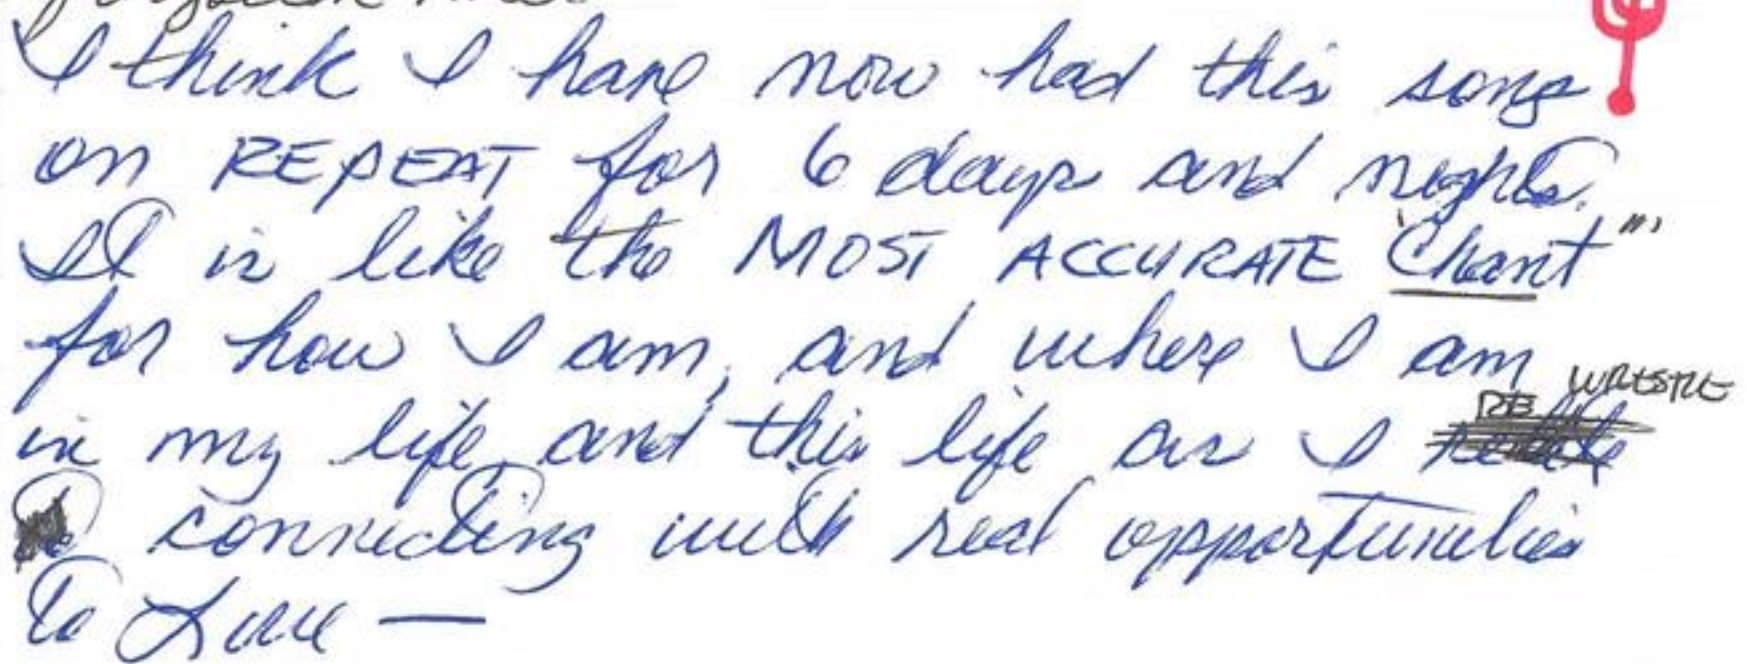 I think I have now had this song
on REPEAT for 6 days and nights.
It is like the MOST ACCURATE "Chant"
for how I am, and where I am
in my life, and this life as I WRESTLE
connecting with real opportunities
to Love —